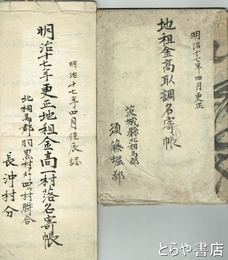 明治十七年四月更正
地租金高取調名寄帳
茨城縣北相馬郡
須藤堀邨
明治十七年四月
明治十七年更正地租金高一村落名寄帳
北相馬郡羽黒村外四ヶ村聯合
長沖村分
とらや書店